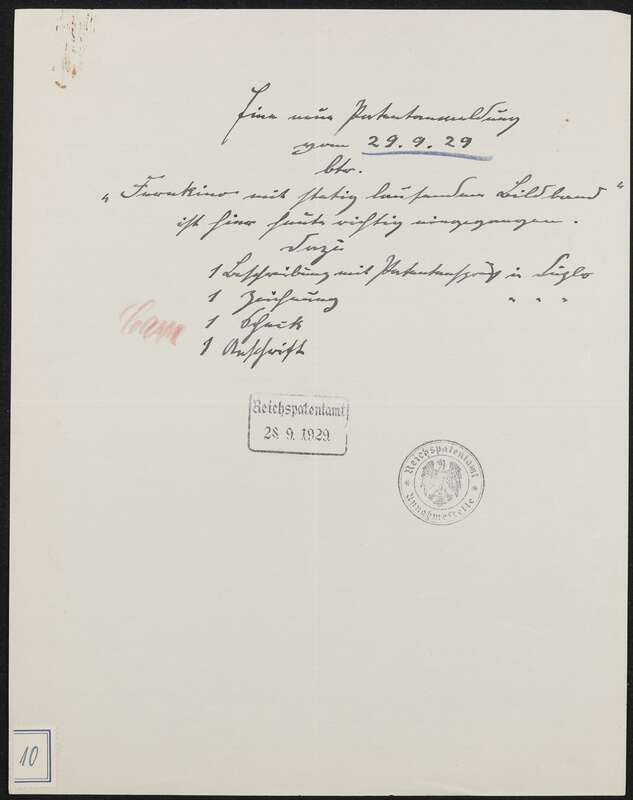 Eine neue Patentanmeldung
vom 29.9.29
btr.
"Fernkino mit stetig laufendem Bildband"
ist hier heute richtig eingegangen.
Dazu
1 Beschreibung mit Patentanspruch in Duplo
1 Zeichnung " " "
1 Scheck
1 Anschrift
Reichspatentamt
28.9.1929
Reichspatentamt
* Annahmestelle *
10